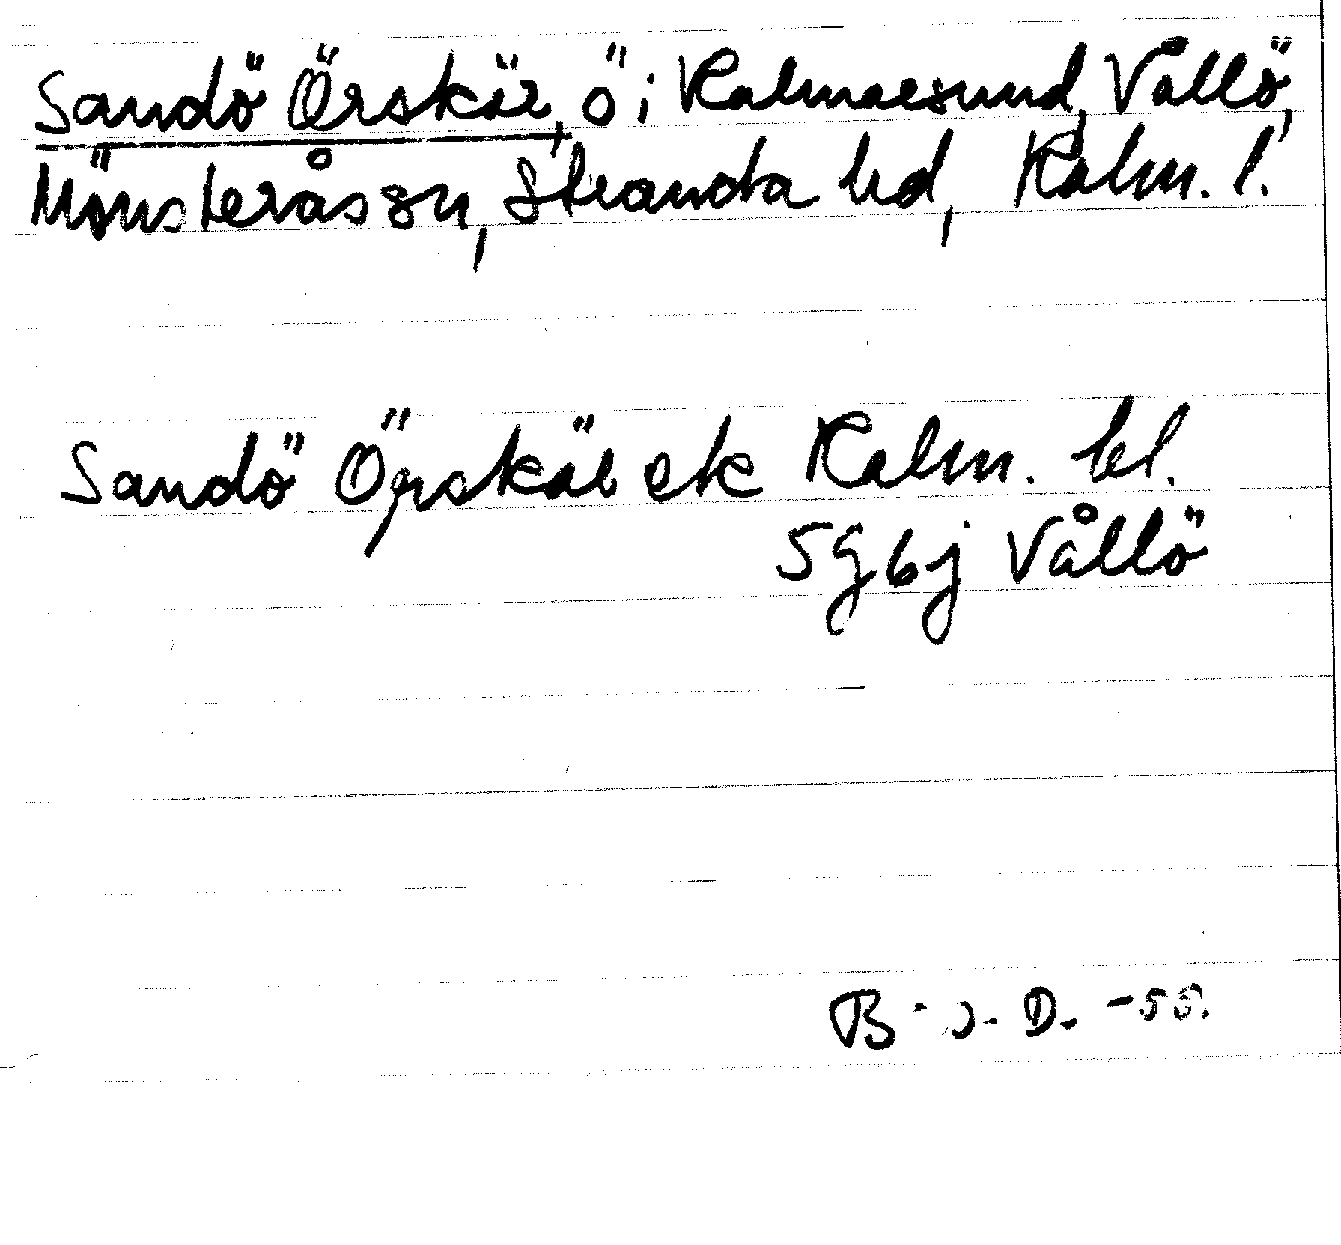 Sandö Örskär, ö i Kalmarsund, Vållö,
Mönsterås sn, Stranda hd, Kalm. l.
Sandö Örskär ek Kalm. bl.
5g6j Vållö
B. J. D. -55.